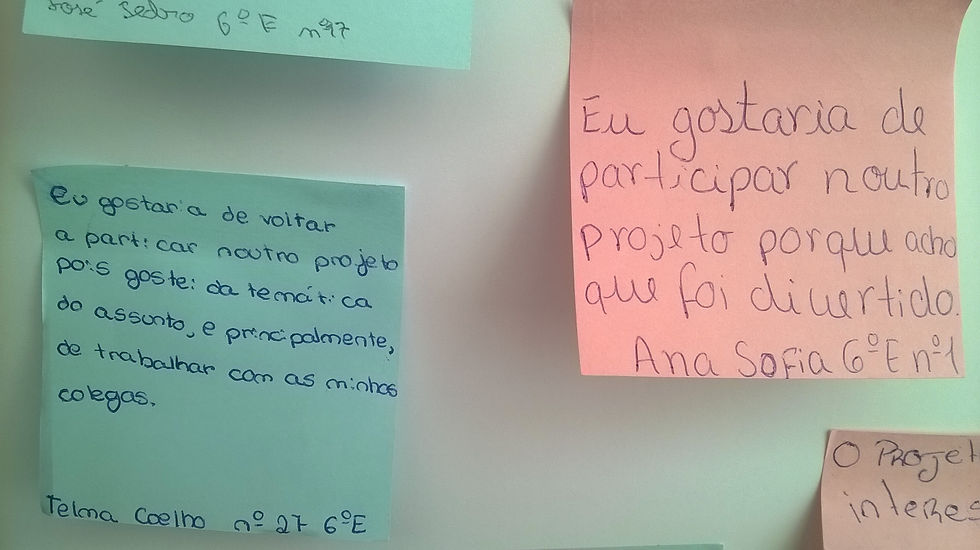 José Pedro 6ºE nº17
Eu gostaria de voltar
a particar noutro projeto
pois gostei da temática
do assunto, e principalmente,
de trabalhar com as minhas
colegas.
Telma Coelho nº 27 6ºE
Eu gostaria de
participar noutro
projeto porque acho
que foi divertido.
Ana Sofia 6ºE nº1
O Projet
interes